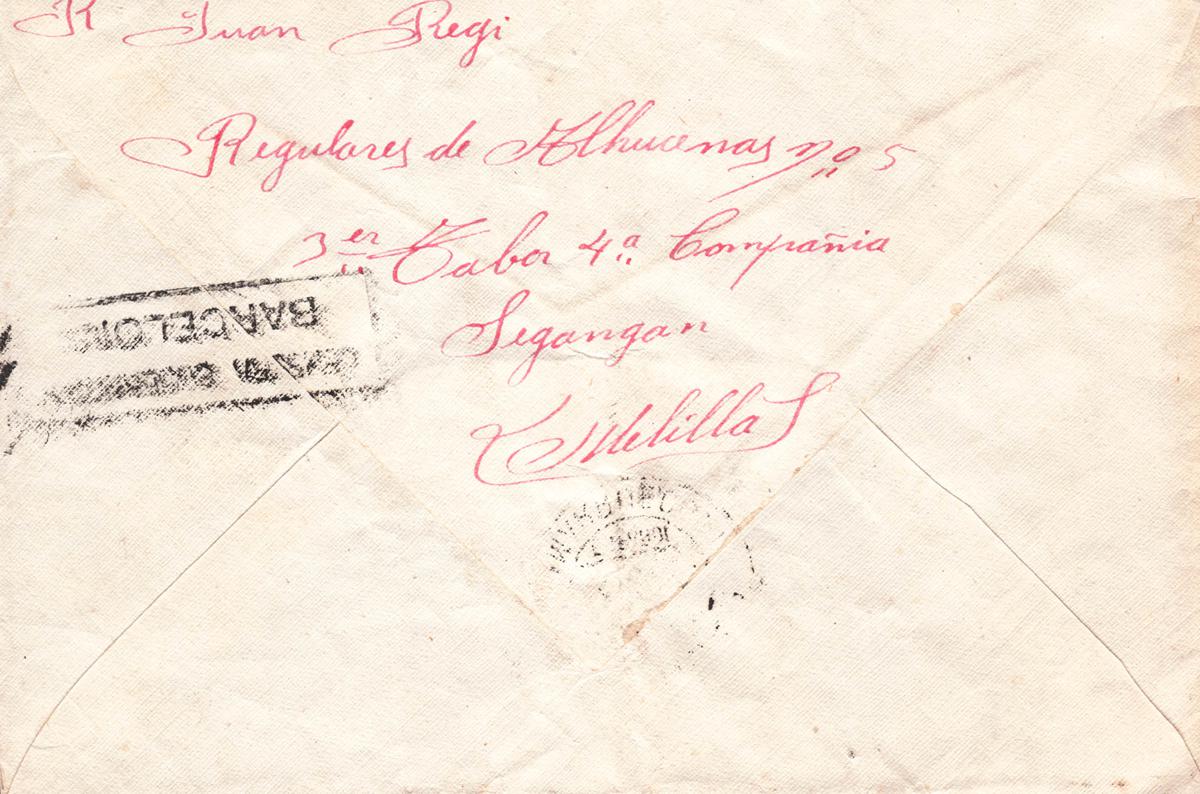 R Juan Regi
Regulares de Alhucenas nº 5
3er Tabor 4ª Compañia
Segangan
Melilla
BARCELON